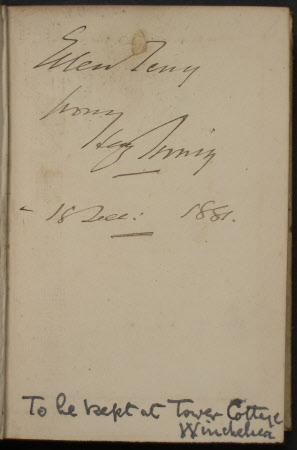 Ellen Terry
from
Hy Irving
- 18 Dec: 1881.
To be kept at Tower Cottage
Winchelsea